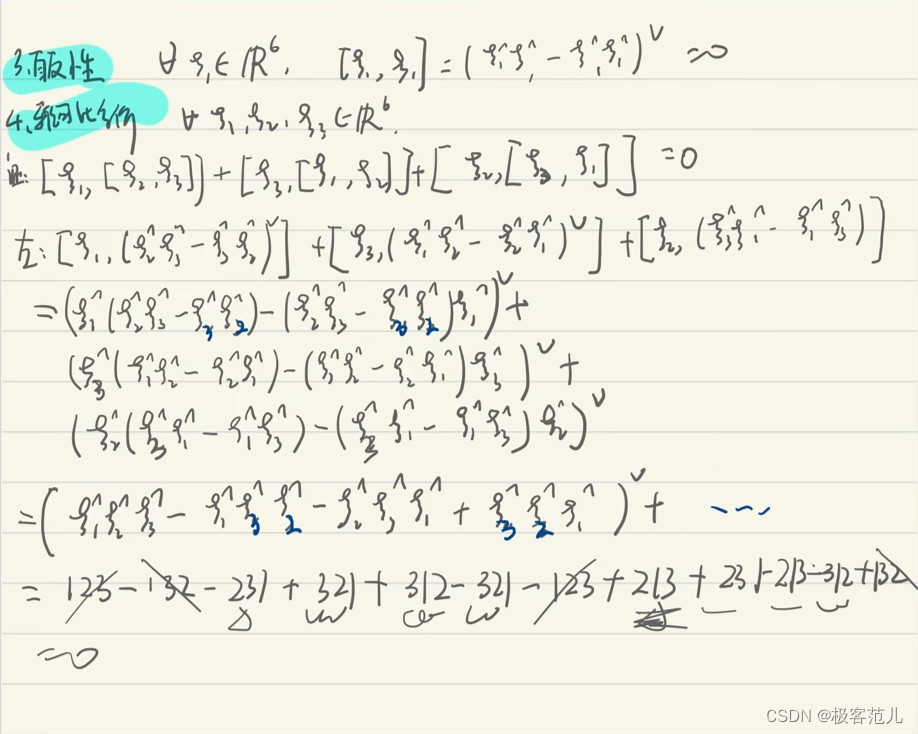 3.自反性 ∀ ξ₁∈ℝ⁶, [ξ₁,ξ₁] = (ξ₁^ξ₁^ − ξ₁^ξ₁^)^∨ =0
4.雅可比等价 ∀ ξ₁,ξ₂,ξ₃∈ℝ⁶,
证: [ξ₁,[ξ₂,ξ₃]] + [ξ₃,[ξ₁,ξ₂]] + [ξ₂,[ξ₃,ξ₁]] =0
左: [ξ₁,(ξ₂^ξ₃^ − ξ₃^ξ₂^)^∨] + [ξ₃,(ξ₁^ξ₂^ − ξ₂^ξ₁^)^∨] + [ξ₂,(ξ₃^ξ₁^ − ξ₁^ξ₃^)]
=(ξ₁^(ξ₂^ξ₃^ − ξ₃^ξ₂^) − (ξ₂^ξ₃^ − ξ₃^ξ₂^)ξ₁^)^∨ +
(ξ₃^(ξ₁^ξ₂^ − ξ₂^ξ₁^) − (ξ₁^ξ₂^ − ξ₂^ξ₁^)ξ₃^)^∨ +
(ξ₂^(ξ₃^ξ₁^ − ξ₁^ξ₃^) − (ξ₃^ξ₁^ − ξ₁^ξ₃^)ξ₂^)^∨
=(ξ₁^ξ₂^ξ₃^ − ξ₁^ξ₃^ξ₂^ − ξ₂^ξ₃^ξ₁^ + ξ₃^ξ₂^ξ₁^)^∨ + ---
= 123 − 132 − 231 + 321 + 312 − 321 − 123 + 213 + 231 − 213 − 312 + 132
=0
CSDN @极客范儿